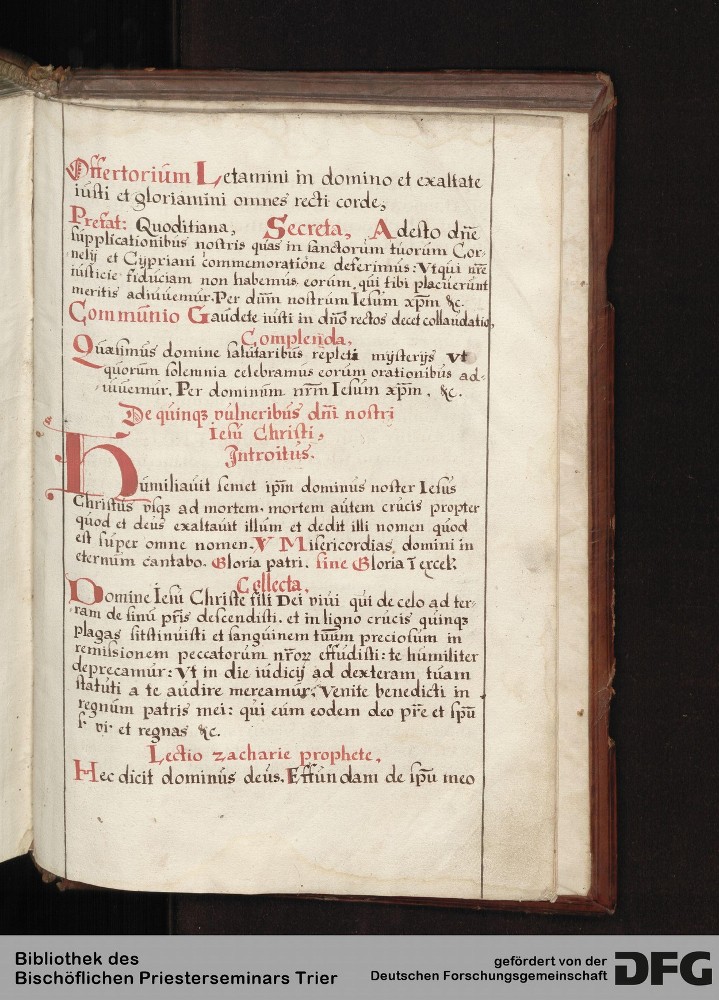 Offertorium Letamini in domino et exaltate
iusti et gloriamini omnes recti corde,
Prefat: Quoditiana, Secreta, Adesto dn̄e
supplicationibus nostris quas in sanctorum tuorum Cor-
nelij et Cypriani commemoratione deferimus: Vt qui nr̄e
iusticie fiduciam non habemus eorum, qui tibi placuerunt
meritis adiuuemur. Per dn̄m nostrum Iesum xp̄m &c.
Communio Gaudete iusti in dn̄o rectos decet collaudatio,
Complenda,
Quæsimus domine salutaribus repleti mysterijs vt
quorum solemnia celebramus eorum orationibus ad-
iuuemur. Per dominum nr̄m Iesum xp̄im, &c.
De quinqȝ vulneribus dn̄i nostri
Iesu Christi,
Introitus.
Humiliauit semet ip̄m dominus noster Iesus
Christus vsqȝ ad mortem, mortem autem crucis propter
quod et deus exaltauit illum et dedit illi nomen quod
est super omne nomen. V Misericordias domini in
eternum cantabo. Gloria patri. sine Gloria ī excel:
Collecta,
Domine Iesu Christe fili Dei viui qui de celo ad ter-
ram de sinu pr̄is descendisti, et in ligno crucis quinqȝ
plagas sustinuisti et sanguinem tuum preciosum in
remissionem peccatorum nr̄oꝝ effudisti: te humiliter
deprecamur: Vt in die iudicij ad dexteram tuam
statuti a te audire mereamur, Venite benedicti in
regnum patris mei: qui cum eodem deo pr̄e et sp̄u
s. vi. et regnas &c.
Lectio zacharie prophete,
Hec dicit dominus deus. Effundam de sp̄u meo
Bibliothek des
Bischöflichen Priesterseminars Trier
gefördert von der
Deutschen Forschungsgemeinschaft
DFG